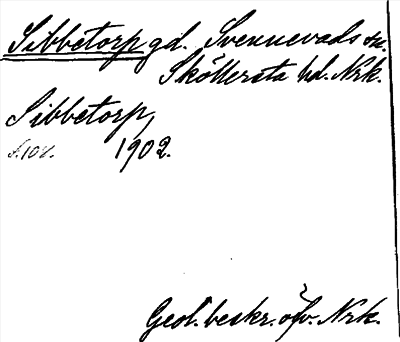 Sibbetorp gd. Svennevads sn.
Sköllersta hd. Nrk.
Sibbetorp,
s. 108. 1902.
Geol. beskr. öfv. Nrk.